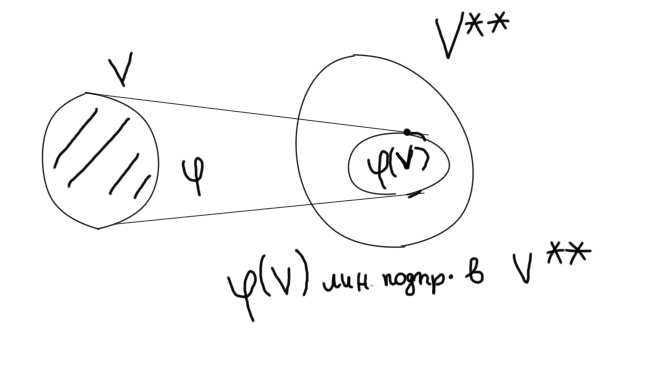 V**
V
φ
φ(V)
φ(V) лин. подпр. в V**